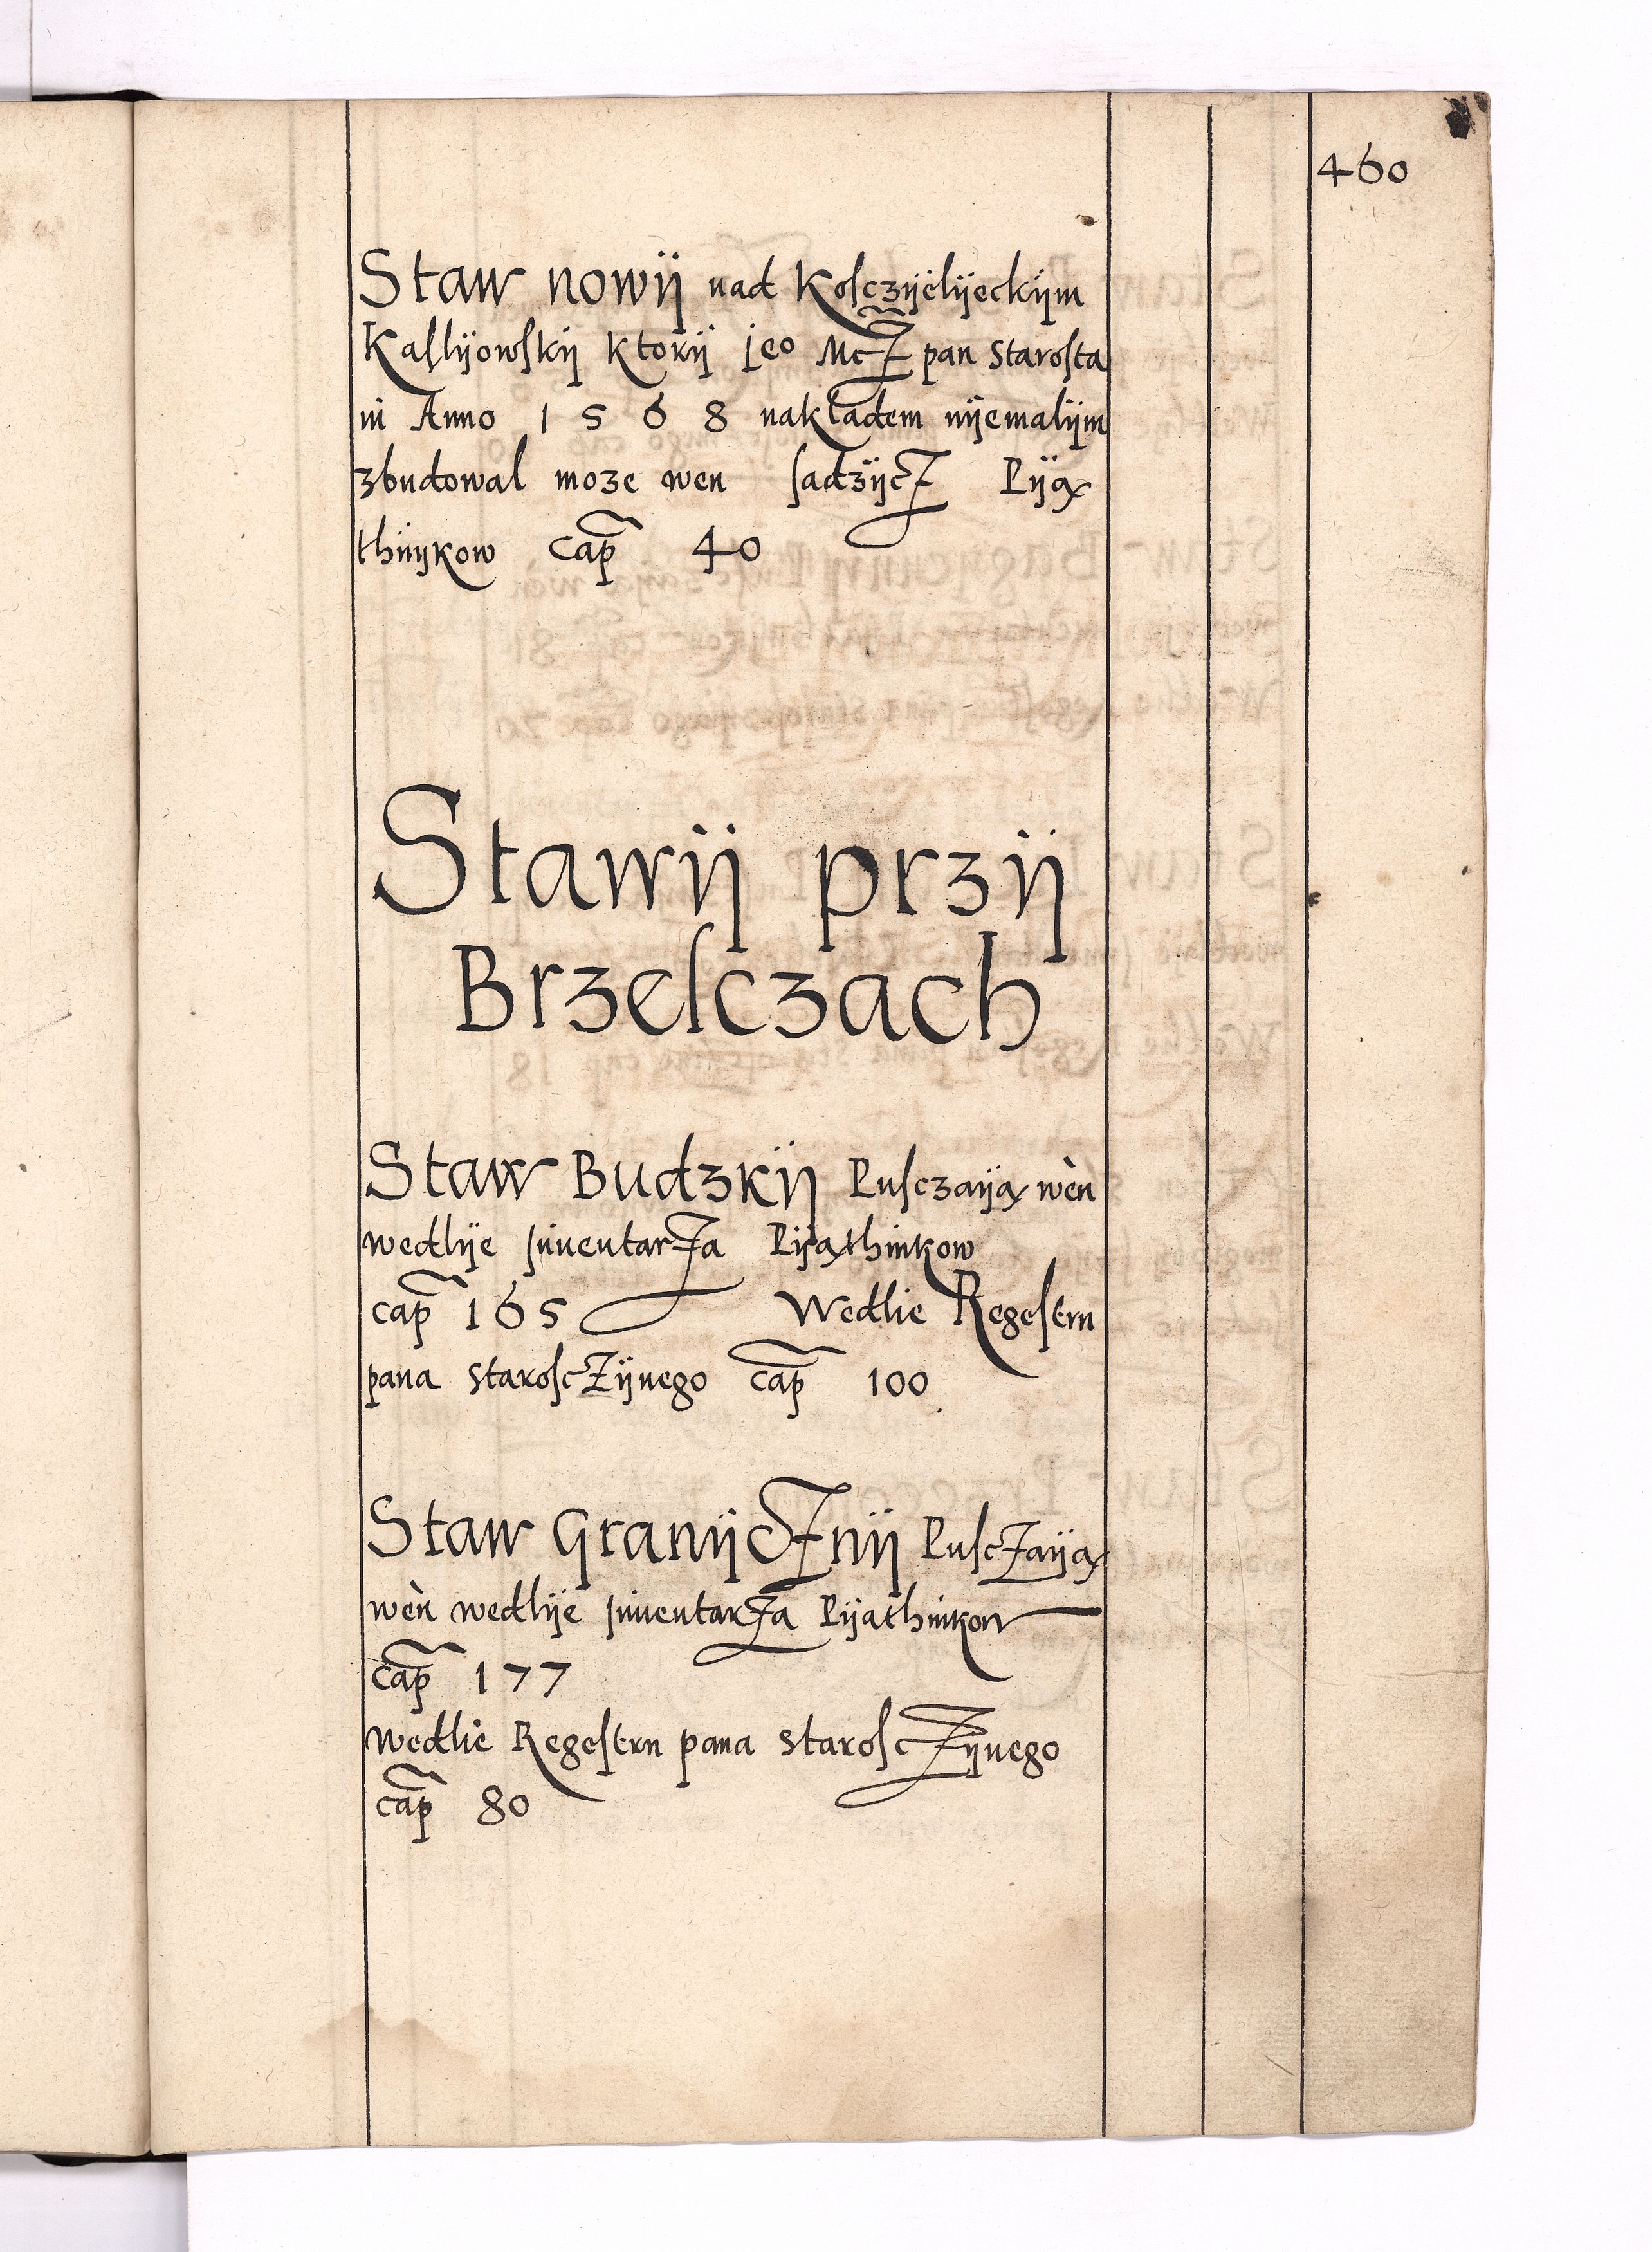 460
Staw nowij nad Kosczijelijeckijm
Kaslijowskij Ktorij jeo MczZ pan Starosta
in Anno 1568 nakladem nijemalijm
zbudowal moze wen sadzijcZ Pija
thnijkow cap 40
Stawij przij
Brzesczach
Staw Budzkij Pusczaija wèn
wedlije jnuentarZa Pijathinkow
cap 165 Wedlie Regestrn
pana staroscZijnego cap 100
Staw GranijcZnij PuscZaija
wèn wedlije jnuentarZa Pijathinkow
cap 177
wedlie Regestrn pana staroscZijnego
cap 80